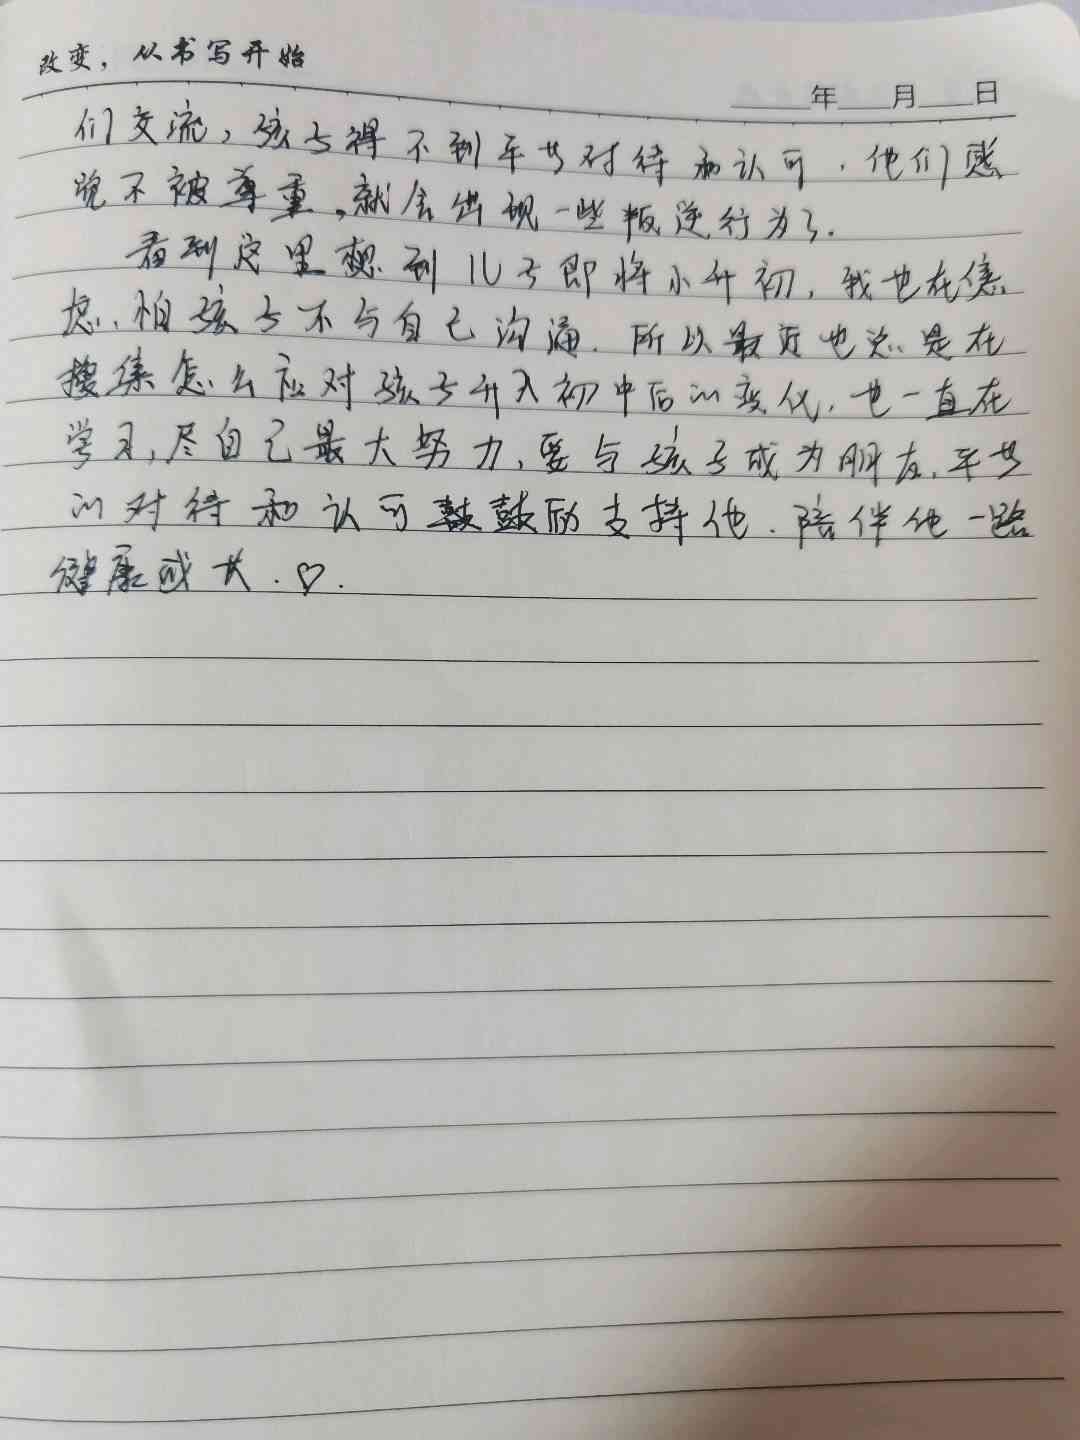 改变，从书写开始
年 月 日
们交流，孩子得不到平等对待和认可，他们感
觉不被尊重，就会出现一些叛逆行为了。
看到这里想到儿子即将小升初，我也在焦
虑，怕孩子不与自己沟通，所以最近也总是在
搜集怎么应对孩子升入初中后的变化，也一直在
学习，尽自己最大努力，要与孩子成为朋友，平等
的对待和认可鼓鼓励支持他，陪伴他一路
健康成长.♡.